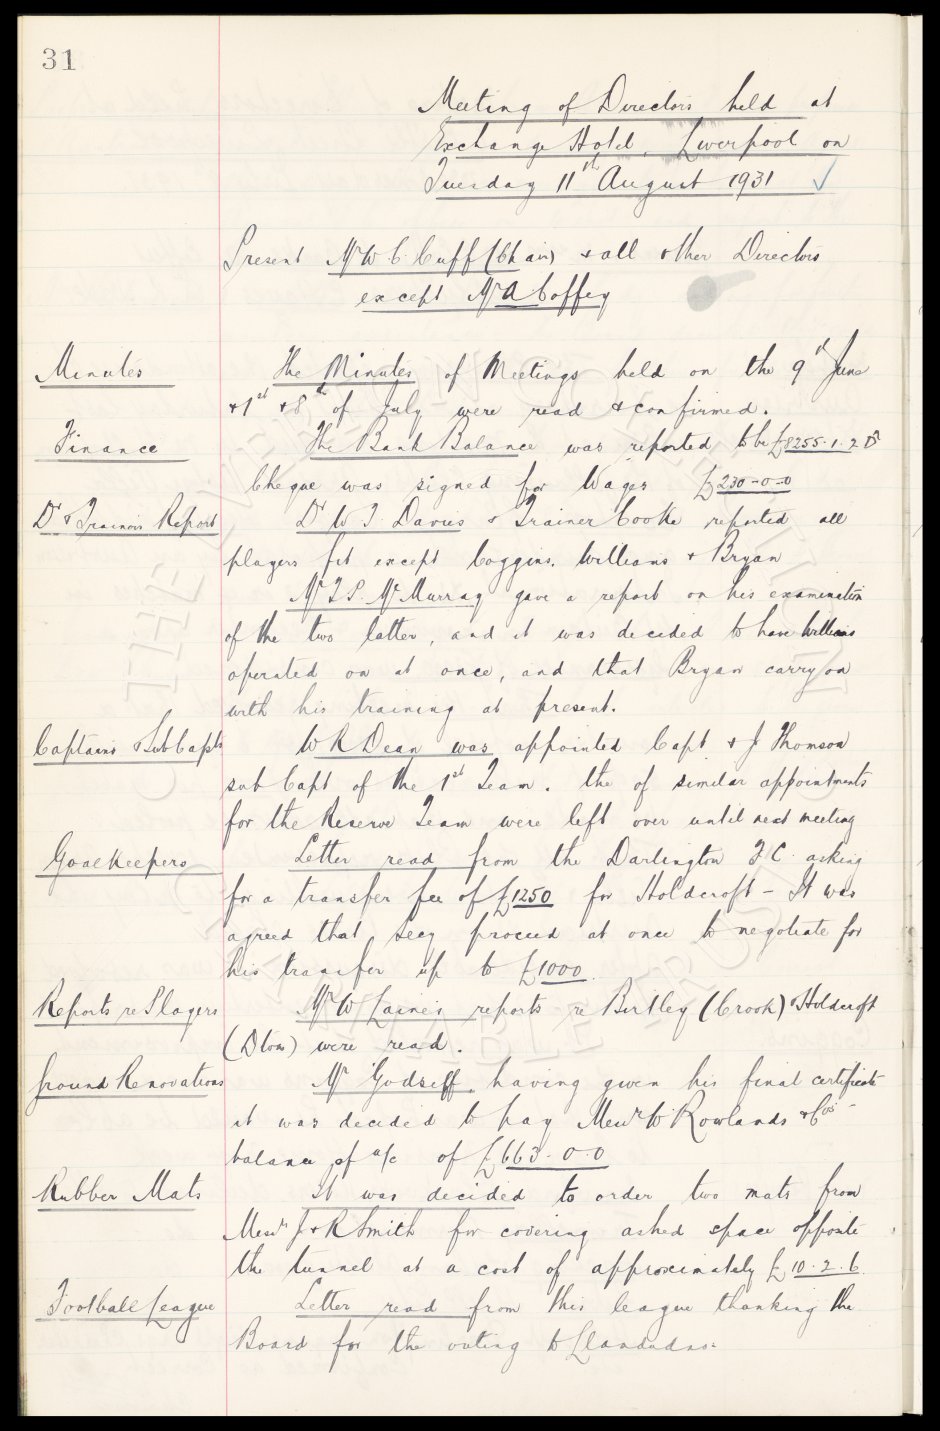 31
Meeting of Directors held at
Exchange Hotel, Liverpool on
Tuesday 11th August 1931 ✓
Present Mr W. C. Cuff (Chair) & all other Directors
except Mr A Coffey
Minutes The Minutes of Meetings held on the 9th June
& 1st & 8th of July were read & confirmed.
Finance The Bank Balance was reported to be £8255.1.2 Dr
Cheque was signed for Wages £230-0-0
Dr & Trainers Report Dr W J. Davies & Trainer Cooke reported all
players fit except Coggins, Williams & Bryan
Mr T. P. McMurray gave a report on his examination
of the two latter, and it was decided to have Williams
operated on at once, and that Bryan carry on
with his training at present.
Captains & Sub Capts W R Dean was appointed Capt & J Thomson
sub Capt of the 1st Team. the of similar appointments
for the Reserve Team were left over until next meeting
Goalkeepers Letter read from the Darlington F.C. asking
for a transfer fee of £1250 for Holdcroft - It was
agreed that Secy proceed at once to negotiate for
his transfer up to £1000.
Reports re Players Mr W Gaines reports re Birtley (Crook) & Holdcroft
(Dton) were read.
Ground Renovations Mr Godseff, having given his final certificate
it was decided to pay Messrs W Rowlands & Cos
balance of a/c of £663-0-0
Rubber Mats It was decided to order two mats from
Messrs J & R Smith for covering ashed space opposite
the tunnel at a cost of approximately £10.2.6.
Football League Letter read from this league thanking the
Board for the outing to Llandudno.
THE EVERTON COLLECTION CHARITABLE TRUST